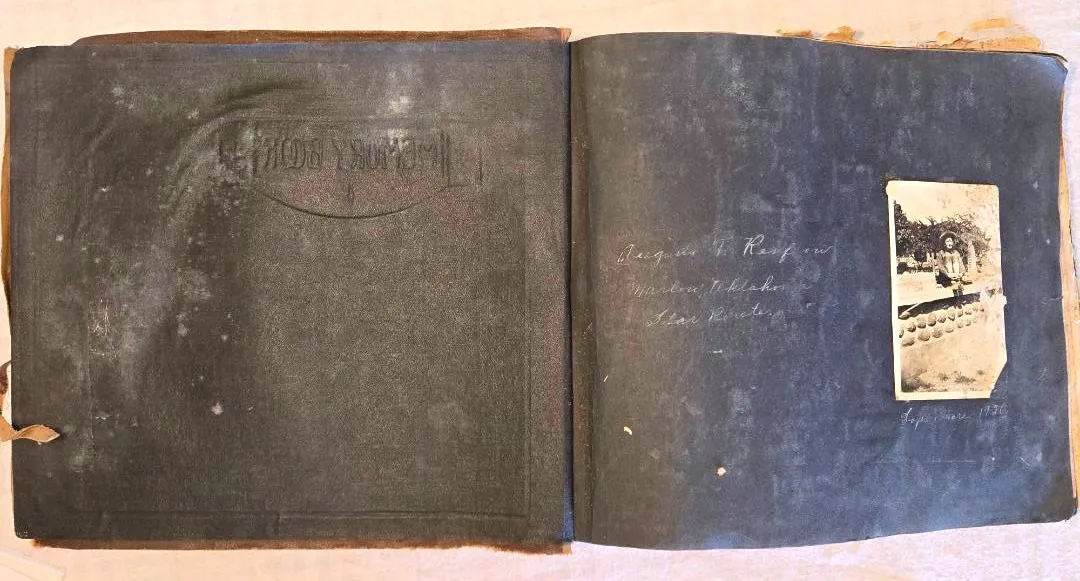 MEMORY BOOK
F. Renfrow
Marlow, Oklahoma
Star Route.
Sophomore 1926